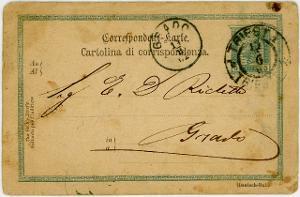 Correspondenz-Karte.
Cartolina di corrispondenza.
GRADO
TRIEST
An
A
Sig E. D Richetti
in
a
Grado